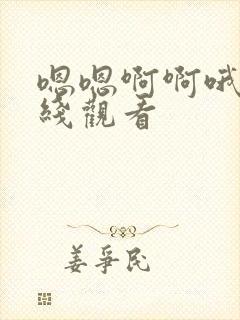 嗯嗯啊啊哦
綫觀看
姜爭民